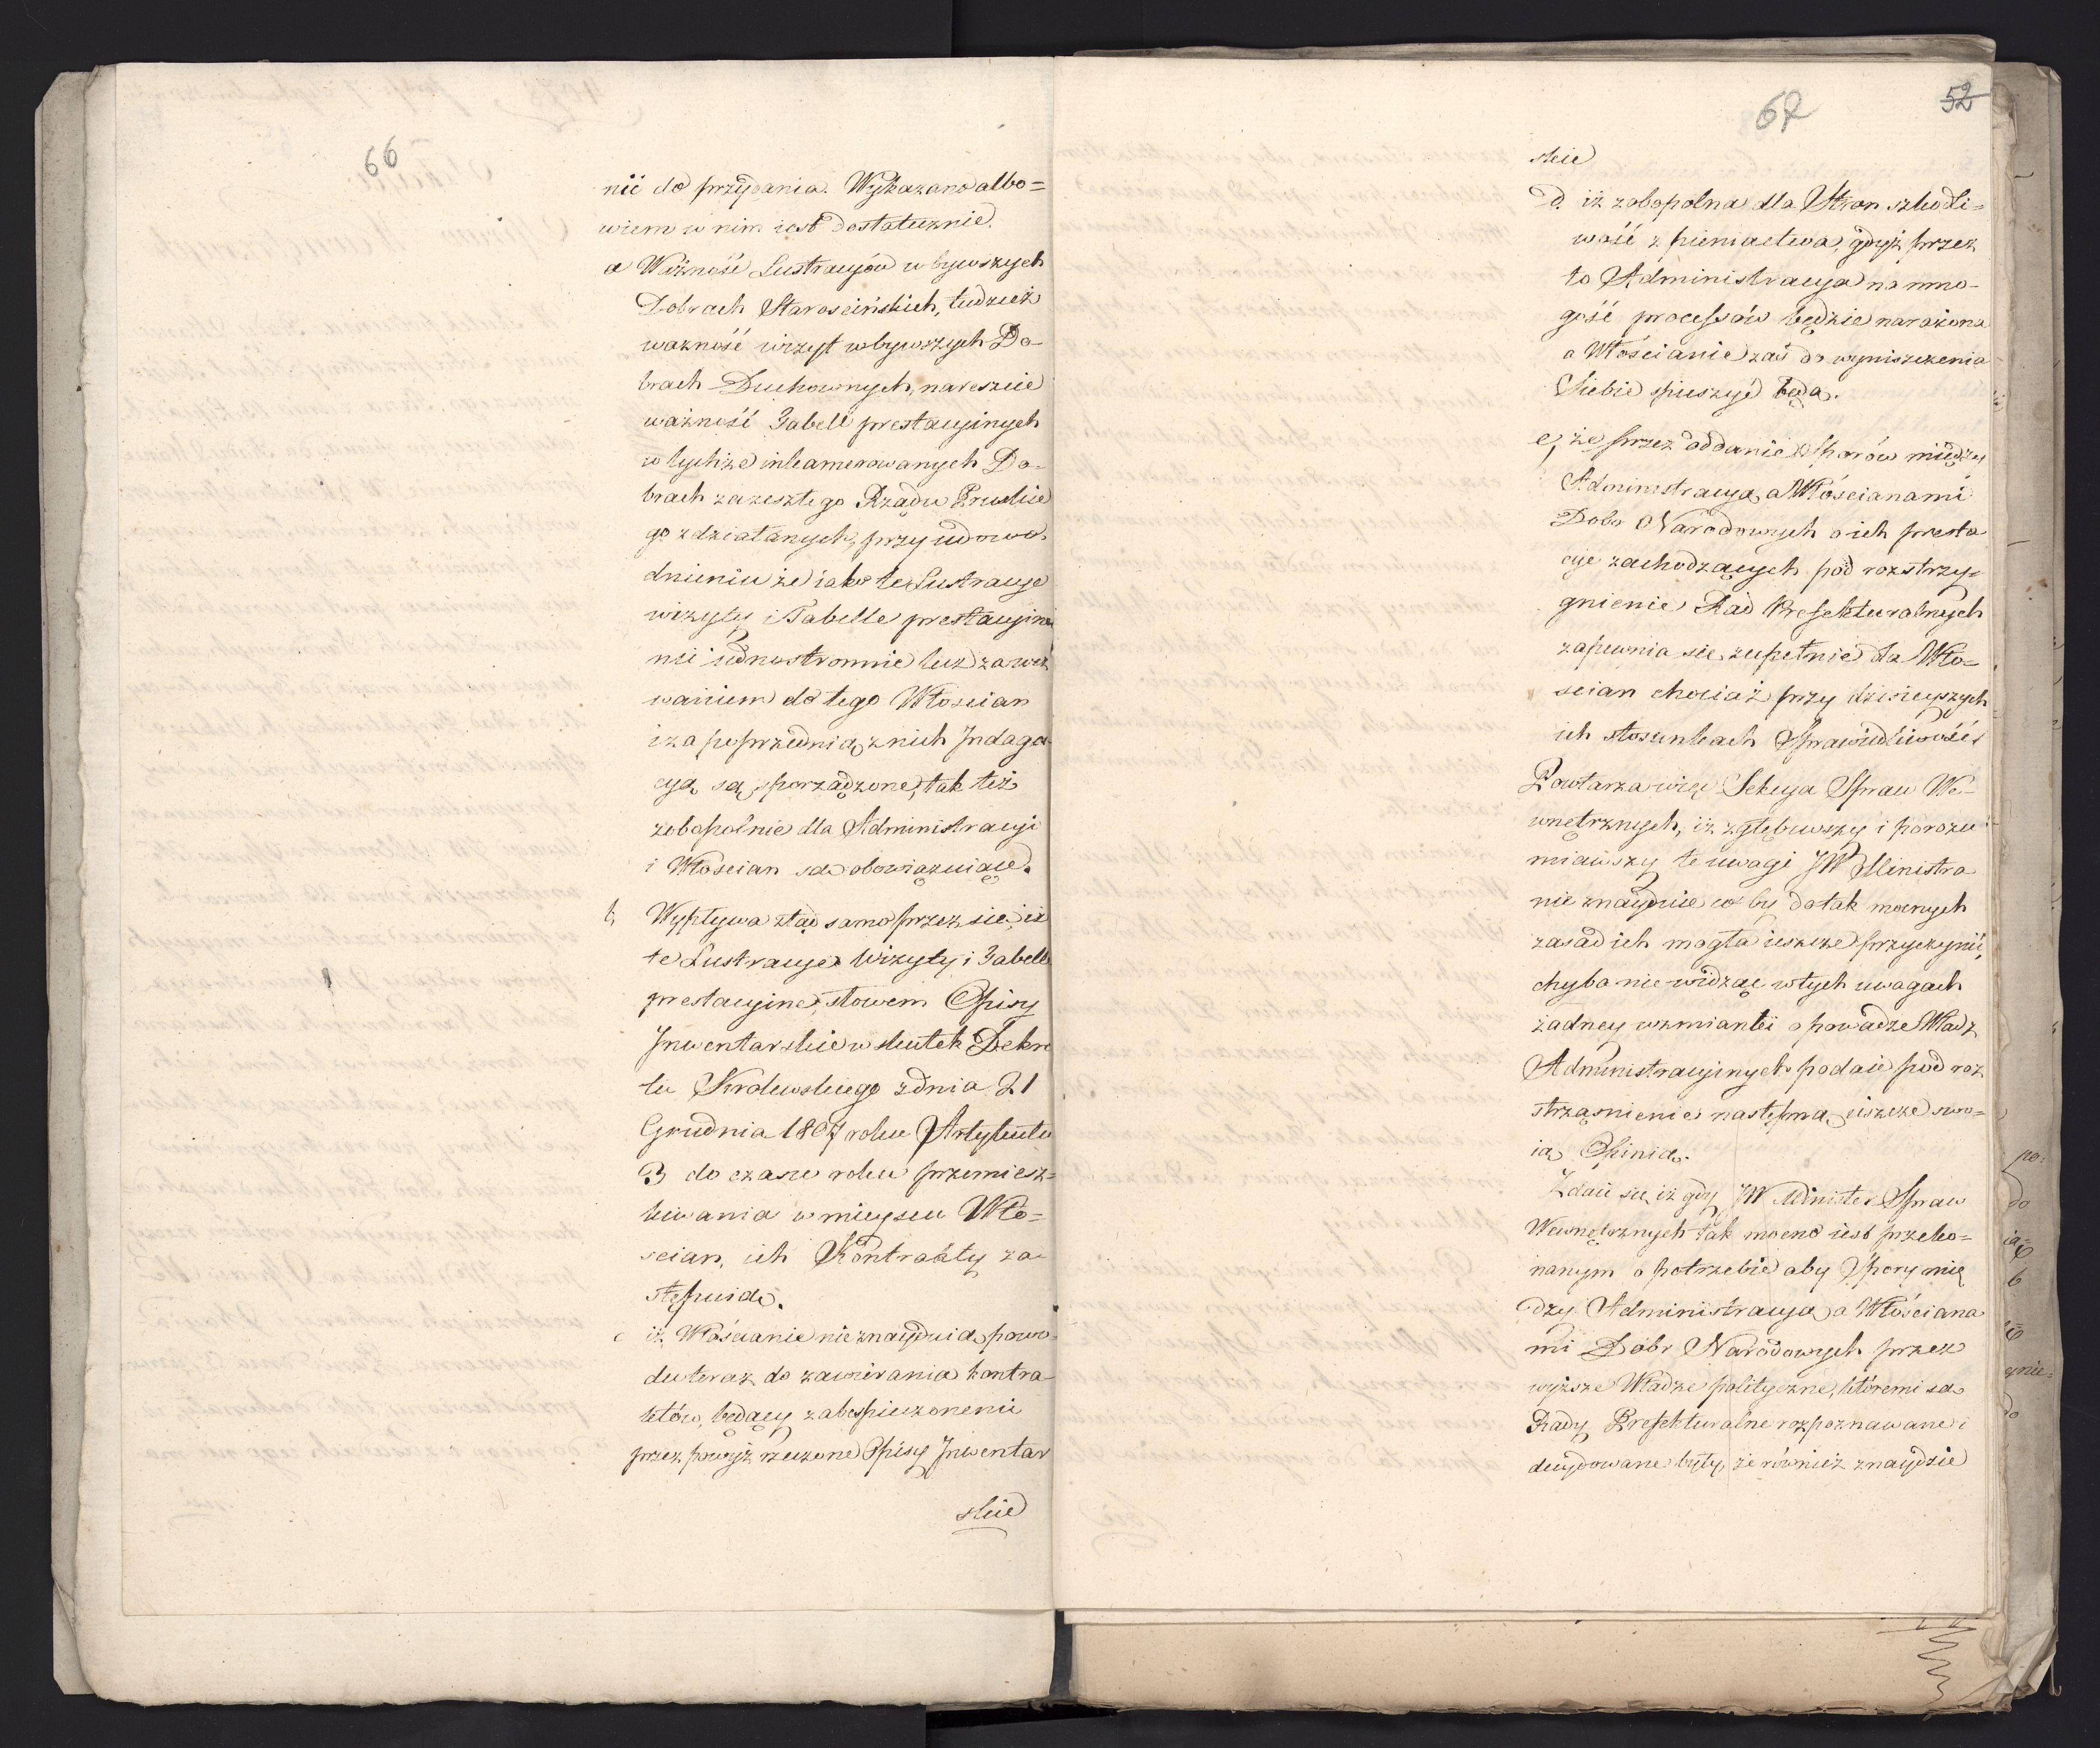 66
nii do przydania. Wykazano albo=
wiem w nim iest dostatecznie.
a Ważność Lustracyów w bywszych
Dobrach Starościńskich, tudzież
ważność wizyt w bywszych Do-
brach Duchownych, nareszcie
ważność Tabell prestacyinych
w tychże inkamerowanych Do-
brach za zeszłego Rządu Pruskie
go zdziałanych, przy udowo-
dnieniu że iako te Lustracye
wizyty i Tabelle prestacyine
nie iednostronnie lecz za wez
waniem do tego Włoscian
i za poprzednią z nich Indaga-
cyą są sporządzone, tak też
zobopolnie dla Administracyi
i Włoscian są obowiązuiące.
b, Wypływa ztąd samo przez się, iż
te Lustracye Wizyty i Tabelle
prestacyine, słowem Opisy
Inwentarskie w skutek Dekre
tu Krolewskiego z dnia 21
Grudnia 1807 roku Artykułu
3 do czasu roku przemiesz=
kiwania w mieyscu Wło=
scian, ich Kontrakty za-
stępuią.
c iż Włościanie nieznayduią powo-
du teraz do zawierania kontra-
któw, będący zabespieczonemi
przez powyż rzeczone Opisy Inwentar
skie
67
52
skie
d. iż zobopolna dla Stron szkodli=
wość z pieniactwa, gdyż przez
to Administracya na mno-
gość processów będzie narażona
a Włościanie zaś do wyniszczenia
Siebie spieszyć będą.
e, że przez oddanie Sporów między
Administracyą a Włościanami
Dobr Narodowych o ich presta
cye zachodzących pod rozstrzy=
gnienie Rad Prefekturalnych
zapewnia się zupełnie dla Wło=
scian chociaż przy dzisieyszych
ich stosunkach Sprawiedliwość.
Powtarza więc Sekcya Spraw We-
wnętrznych, iż zgłębiwszy i porozu
miawszy te uwagi JW Ministra
nie znayduie coby do tak mocnych
zasad ich mogła ieszcze przyczynić,
chyba nie widząc w tych uwagach
żadney wzmianki o powadze Władz
Administracyinych podaie pod roz
strząśnienie następną ieszcze swo=
ią Opinią.
Zdaie się iż gdy JW Minister Spraw
Wewnętrznych tak mocno iest przeko=
nanym o potrzebie aby Spory mię
dzy Administracyą a Włościana
mi Dobr Narodowych przez
wyższe Władze polityczne, któremi są
Rady Prefekturalne rozpoznawane i
decydowane były, że również znaydzie